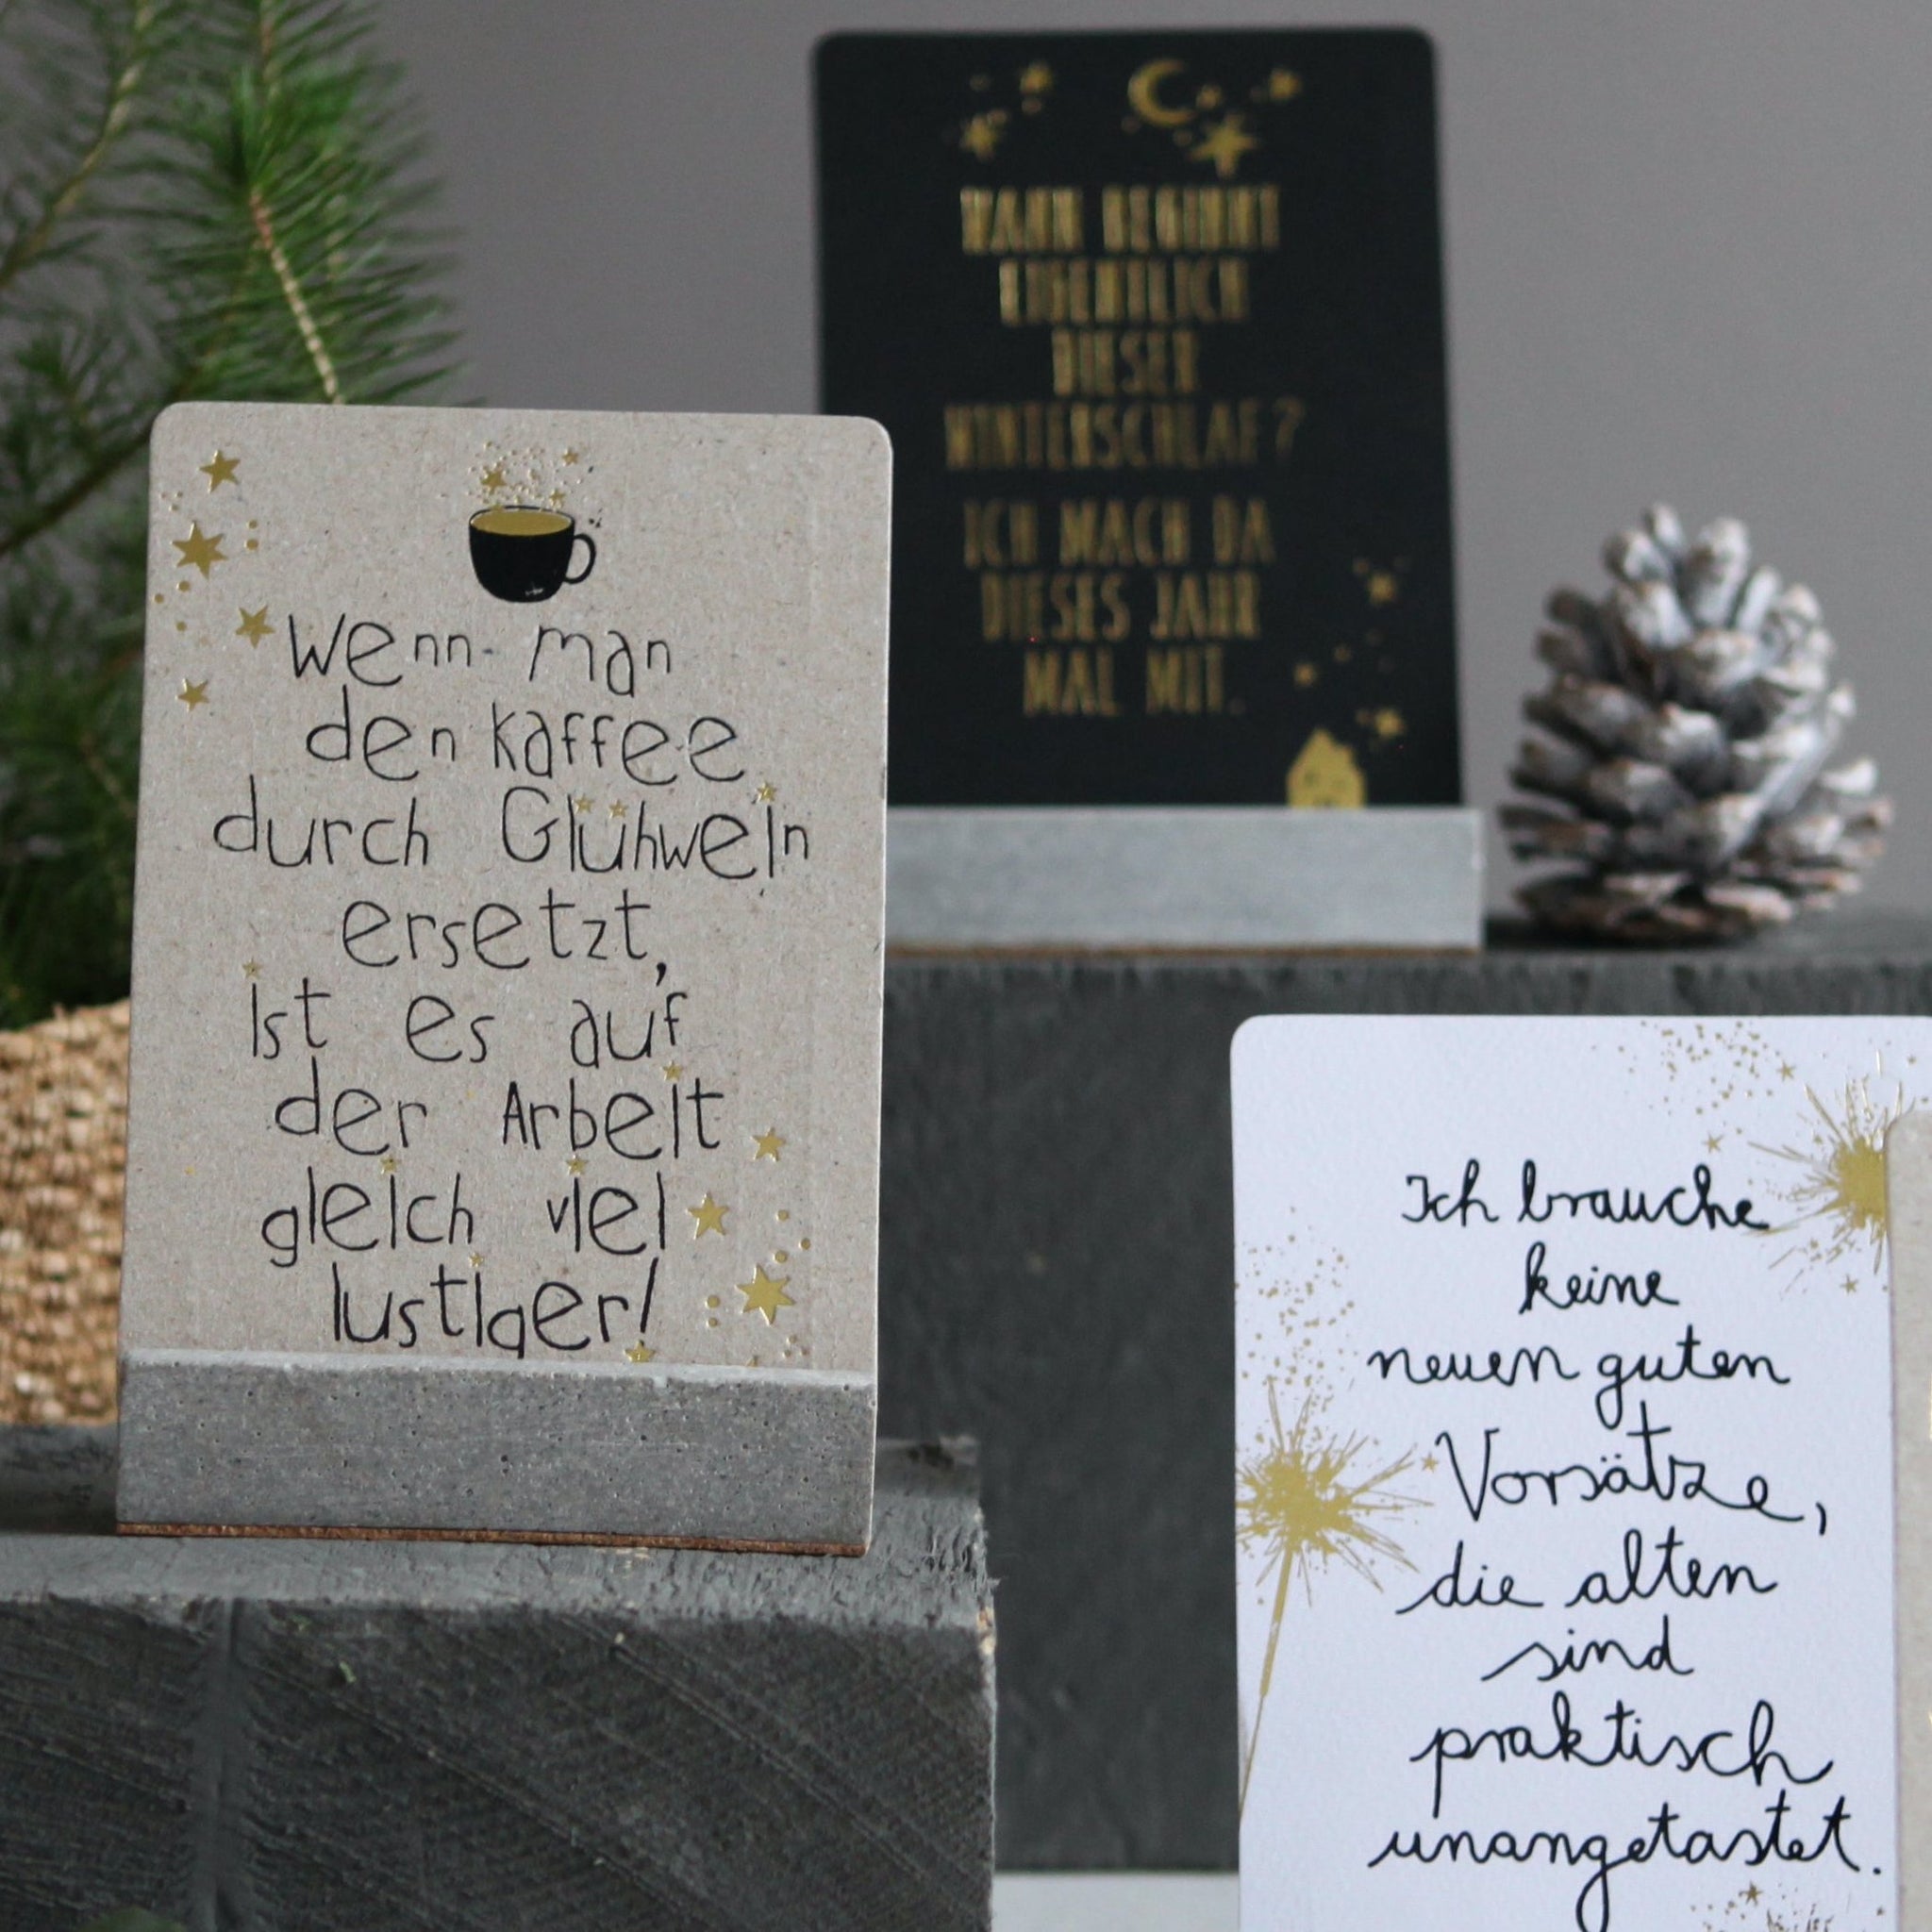 Wenn man
den Kaffee
durch Glühwein
ersetzt,
ist es auf
der Arbeit
gleich viel
lustiger!
WANN BEGINNT
EIGENTLICH
DIESER
WINTERSCHLAF?
ICH MACH DA
DIESES JAHR
MAL MIT.
Ich brauche
keine
neuen guten
Vorsätze,
die alten
sind
praktisch
unangetastet.